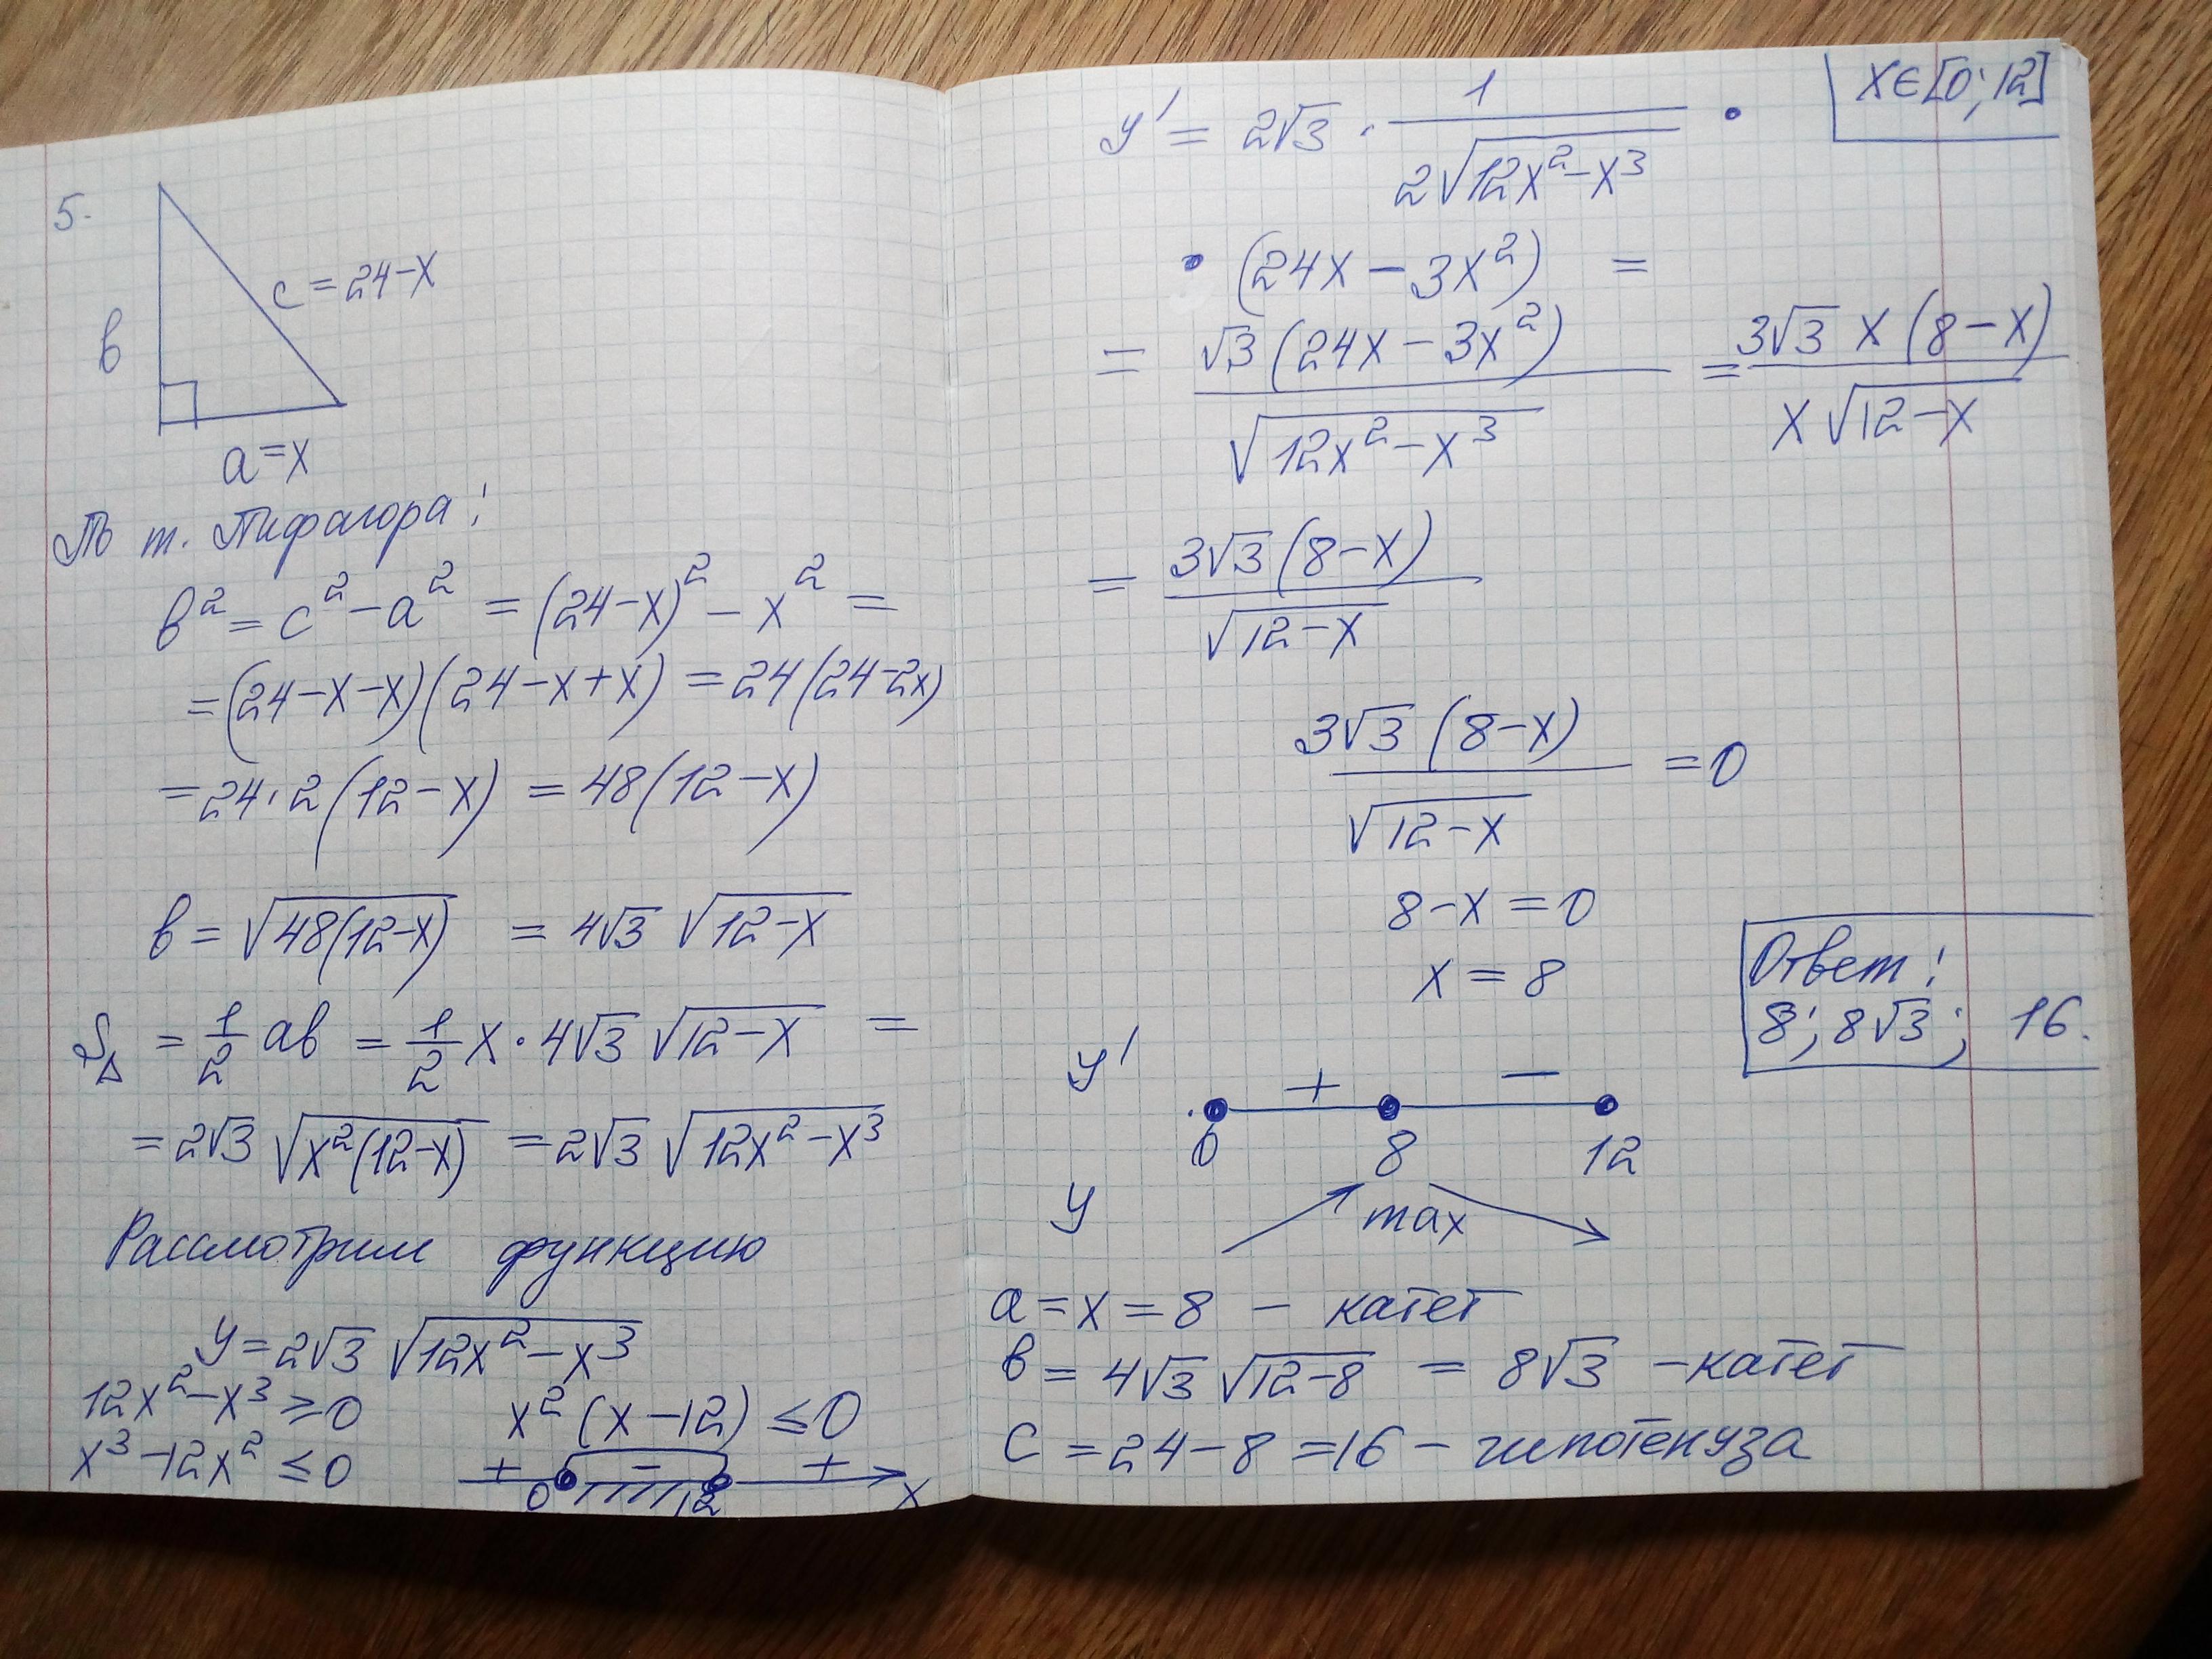 5.
c = 24-x
в
a = x
По т. Пифагора:
в² = c² - a² = (24-x)² - x² =
= (24-x-x)(24-x+x) = 24(24-2x)
= 24·2(12-x) = 48(12-x)
в = √(48(12-x)) = 4√3 √(12-x)
S△ = 1/2 aв = 1/2 x·4√3 √(12-x) =
= 2√3 √(x²(12-x)) = 2√3 √(12x²-x³)
Рассмотрим функцию
y = 2√3 √(12x²-x³)
12x²-x³ ≥ 0
x³-12x² ≤ 0
x²(x-12) ≤ 0
+ - +
0 12 x
x∈[0;12]
y' = 2√3 · 1/(2√(12x²-x³)) ·
· (24x - 3x²) =
= √3(24x-3x²)/√(12x²-x³) = 3√3 x(8-x)/(x√(12-x))
= 3√3(8-x)/√(12-x)
3√3(8-x)/√(12-x) = 0
8-x = 0
x = 8
y' + -
0 8 12
y max
a = x = 8 - катет
в = 4√3 √(12-8) = 8√3 - катет
c = 24-8 = 16 - гипотенуза
Ответ:
8; 8√3; 16.